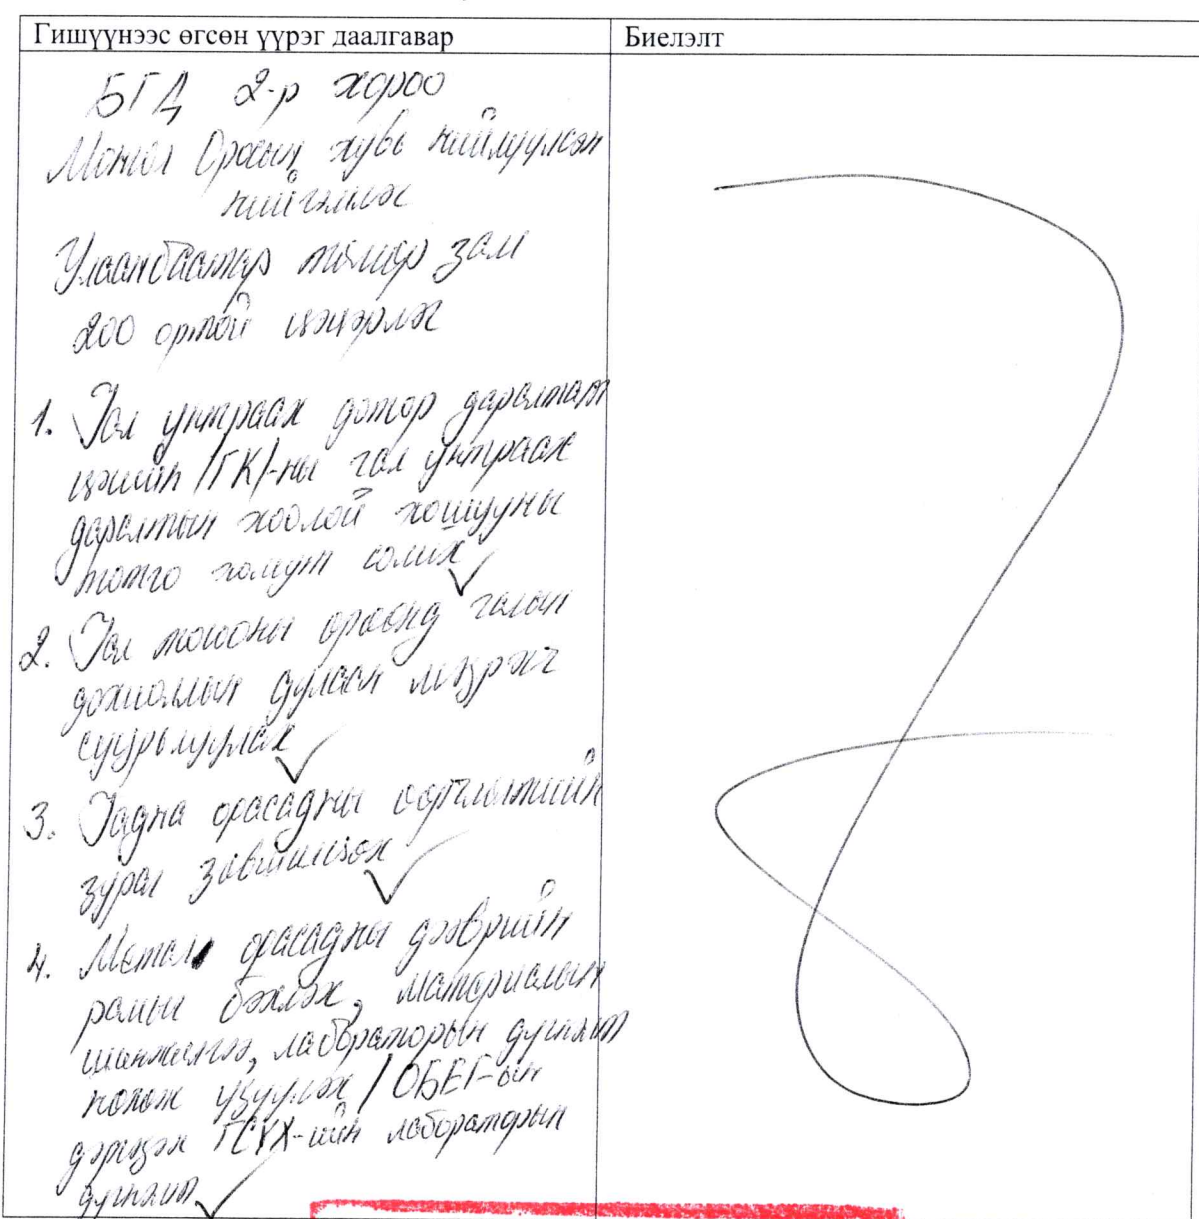 Гишүүнээс өгсөн үүрэг даалгавар
Биелэлт
БГД 2-р хороо
Монгол Оросын хувь нийлүүлсэн
нийгэмлэг
Улаанбаатар төмөр зам
200 ортой цэцэрлэг
1. Гал унтраах дотор даралтат
цэгийн /ГК/-ны гал унтраах
даралтын хоолой хошууны
тотго хомут солих
2. Гал тогооны өрөөнд галын
дохиоллын дулаан мэдрэгч
суурьлуулах
3. Гадна фасадны өөрчлөлтийн
зураг зөвшилцөх
4. Метал фасадны дээврийн
рамы бэхлэх, материалын
шинжилгээ, лабораторын дүгнэлт
нотлож үзүүлэх /ОБЕГ-ын
дэргэдэх ГСҮХ-ийн лабораторын
дүгнэлт